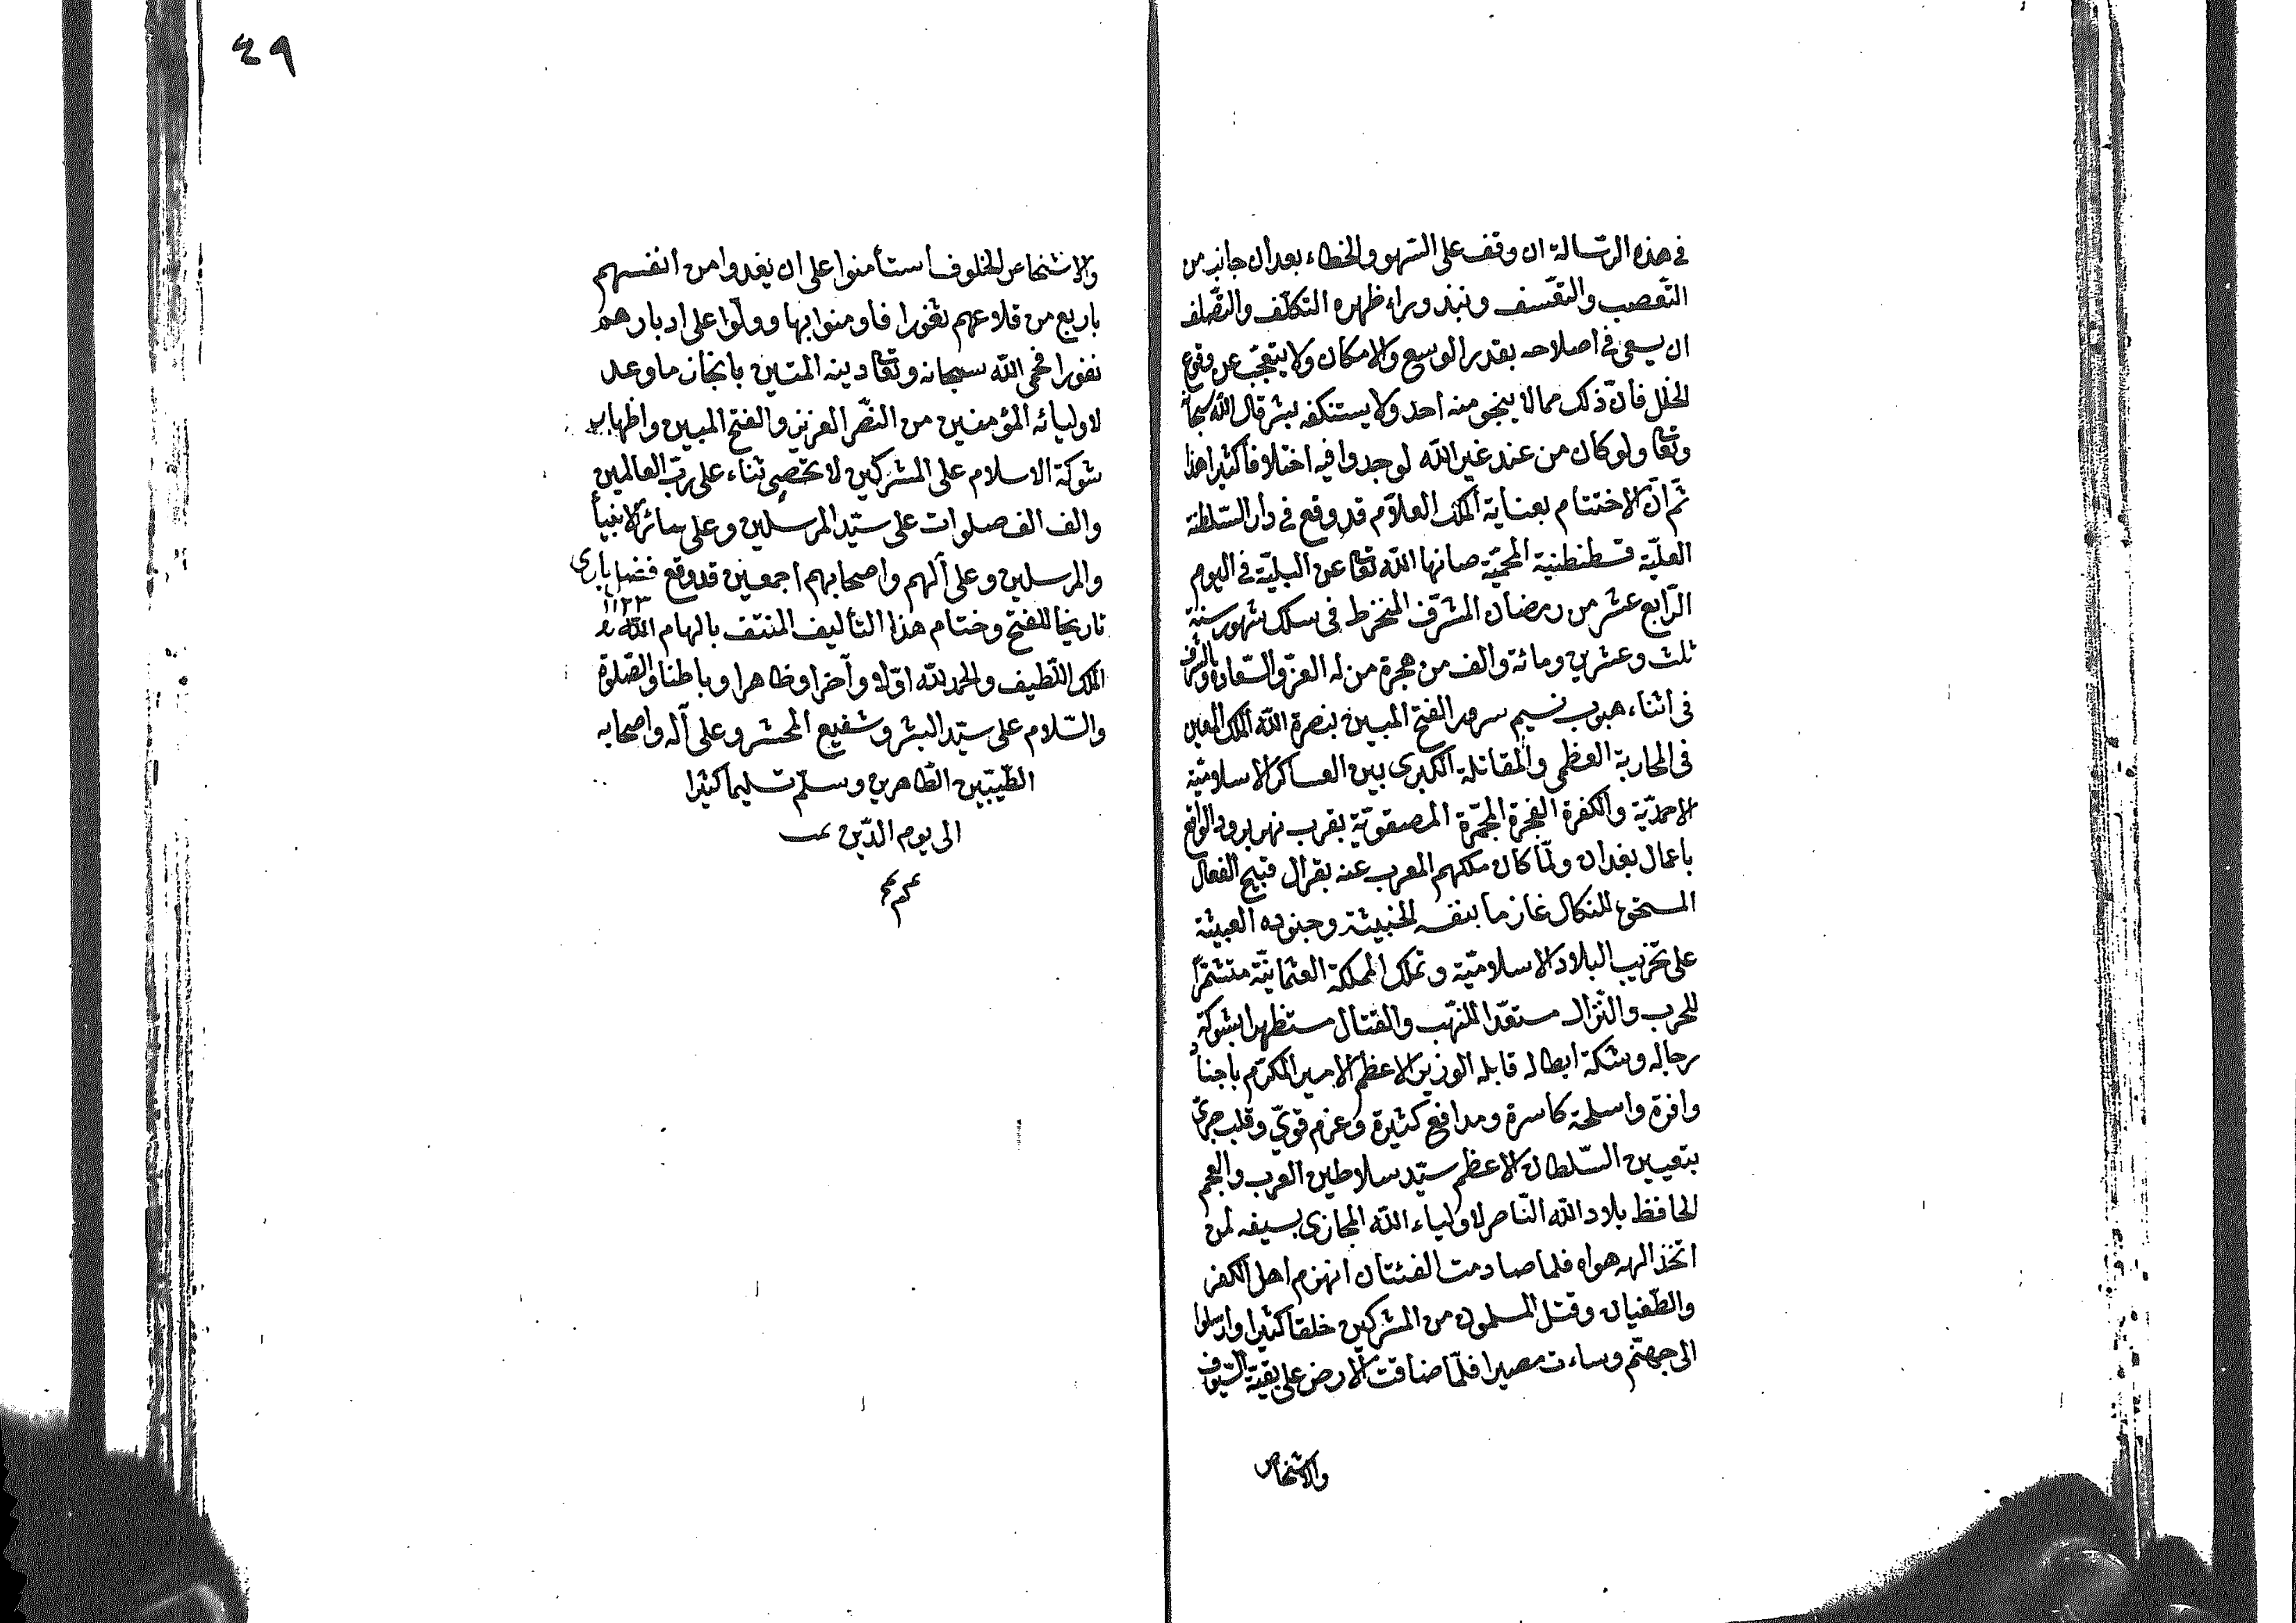 في هذه الرّسالة ان وقف على السّهو والخطاء بعد ان جانب من
التّعصب والتعّسف ونبذ وراء ظهره التكلّف والتّصلف
ان يسعى في اصلاحه بقدر الوسع والامكان ولا يتعجّب عن وقوع
الخلل فانّ ذلك مما لا ينجو منه احد ولا يستنكفه بشر قال الله سبحانه
وتعا ولو كان من عند غير الله لوجدوا فيه اختلافا كثيرا هذا
ثمّ انّ الاختتام بعناية الملك العلاّم قد وقع في دار السّلطنة
العليّة قسطنطنية المحميّة صانها الله تعا عن البليّة في اليوم
الرّابع عشر من رمضان المشرّف المنخرط في سلك شهور سنة
ثلث وعشرين ومائة والف من هجرة من له العزّ والسّعادة والشرف
في اثناء هبوب نسيم سرور الفتح المبين بنصرة الله الملك المعين
في المحاربة العظمى والمقاتلة الكبرى بين العساكر الاسلاميّة
الاحمديّة والكفرة الفجرة المصقوتيّة بقرب نهر برود الواقع
باعمال بغدان ولمّا كان ملكهم المعرب عنه بقرال قبيح الفعال
المستحق للنكال عازما بنفسه الخبيثة وجنوده العبيثة
على تخريب البلاد الاسلاميّة وتملك المملكة العثمانيّة متشمّرا
للحرب والنّزال مستعدّا للنهّب والقتال مستظهرا بشوكة
رجاله وشكة ابطاله قابله الوزير الاعظم الامير المكرّم باجناد
وافرة واسلحة كاسرة ومدافع كثيرة وعزم قويّ وقلب جريّ
بتعيين السّلطان الاعظم سيّد سلاطين العرب والعجم
الحافظ بلاد الله النّاصر لاولياء الله المجازى بسيفه لمن
اتّخذ الهه هواه فلما صادمت الفئتان انهزم اهل الكفر
والطّغيان وقتل المسلمون من المشركين خلقا كثيرا وارسلوا
الى جهنّم وساءت مصيرا فلمّا ضاقت الارض على بقيّة السّيوف
والاشخاص
٤٩
والاشخاص الخلوف استأمنوا على ان يفدوا من انفسهم
باربع من قلاعهم ثغورا فاومنوا بها وولّوا على ادبارهم
نفورا فحمى الله سبحانه وتعا دينه المتين بانجاز ما وعد
لاوليائه المؤمنين من النّصر العزيز والفتح المبين واظهار
شوكة الاسلام على المشركين لا نحصى ثناء على ربّ العالمين
والف الف صلوات على سيّد المرسلين وعلى سائر الانبيأ
والمرسلين وعلى آلهم واصحابهم اجمعين قد وقع فضل بارى
١١٢٣
تاريخا للفتح وختام هذا التأليف المنتف بالهام الله
الملك اللّطيف والحمد لله اوّلا وآخرا وظاهرا وباطنا والصّلوة
والسّلام على سيّد البشر وشفيع المحشر وعلى آله واصحابه
الطّيّبين الطّاهرين وسلّم تسليما كثيرا
الى يوم الدّين تمت